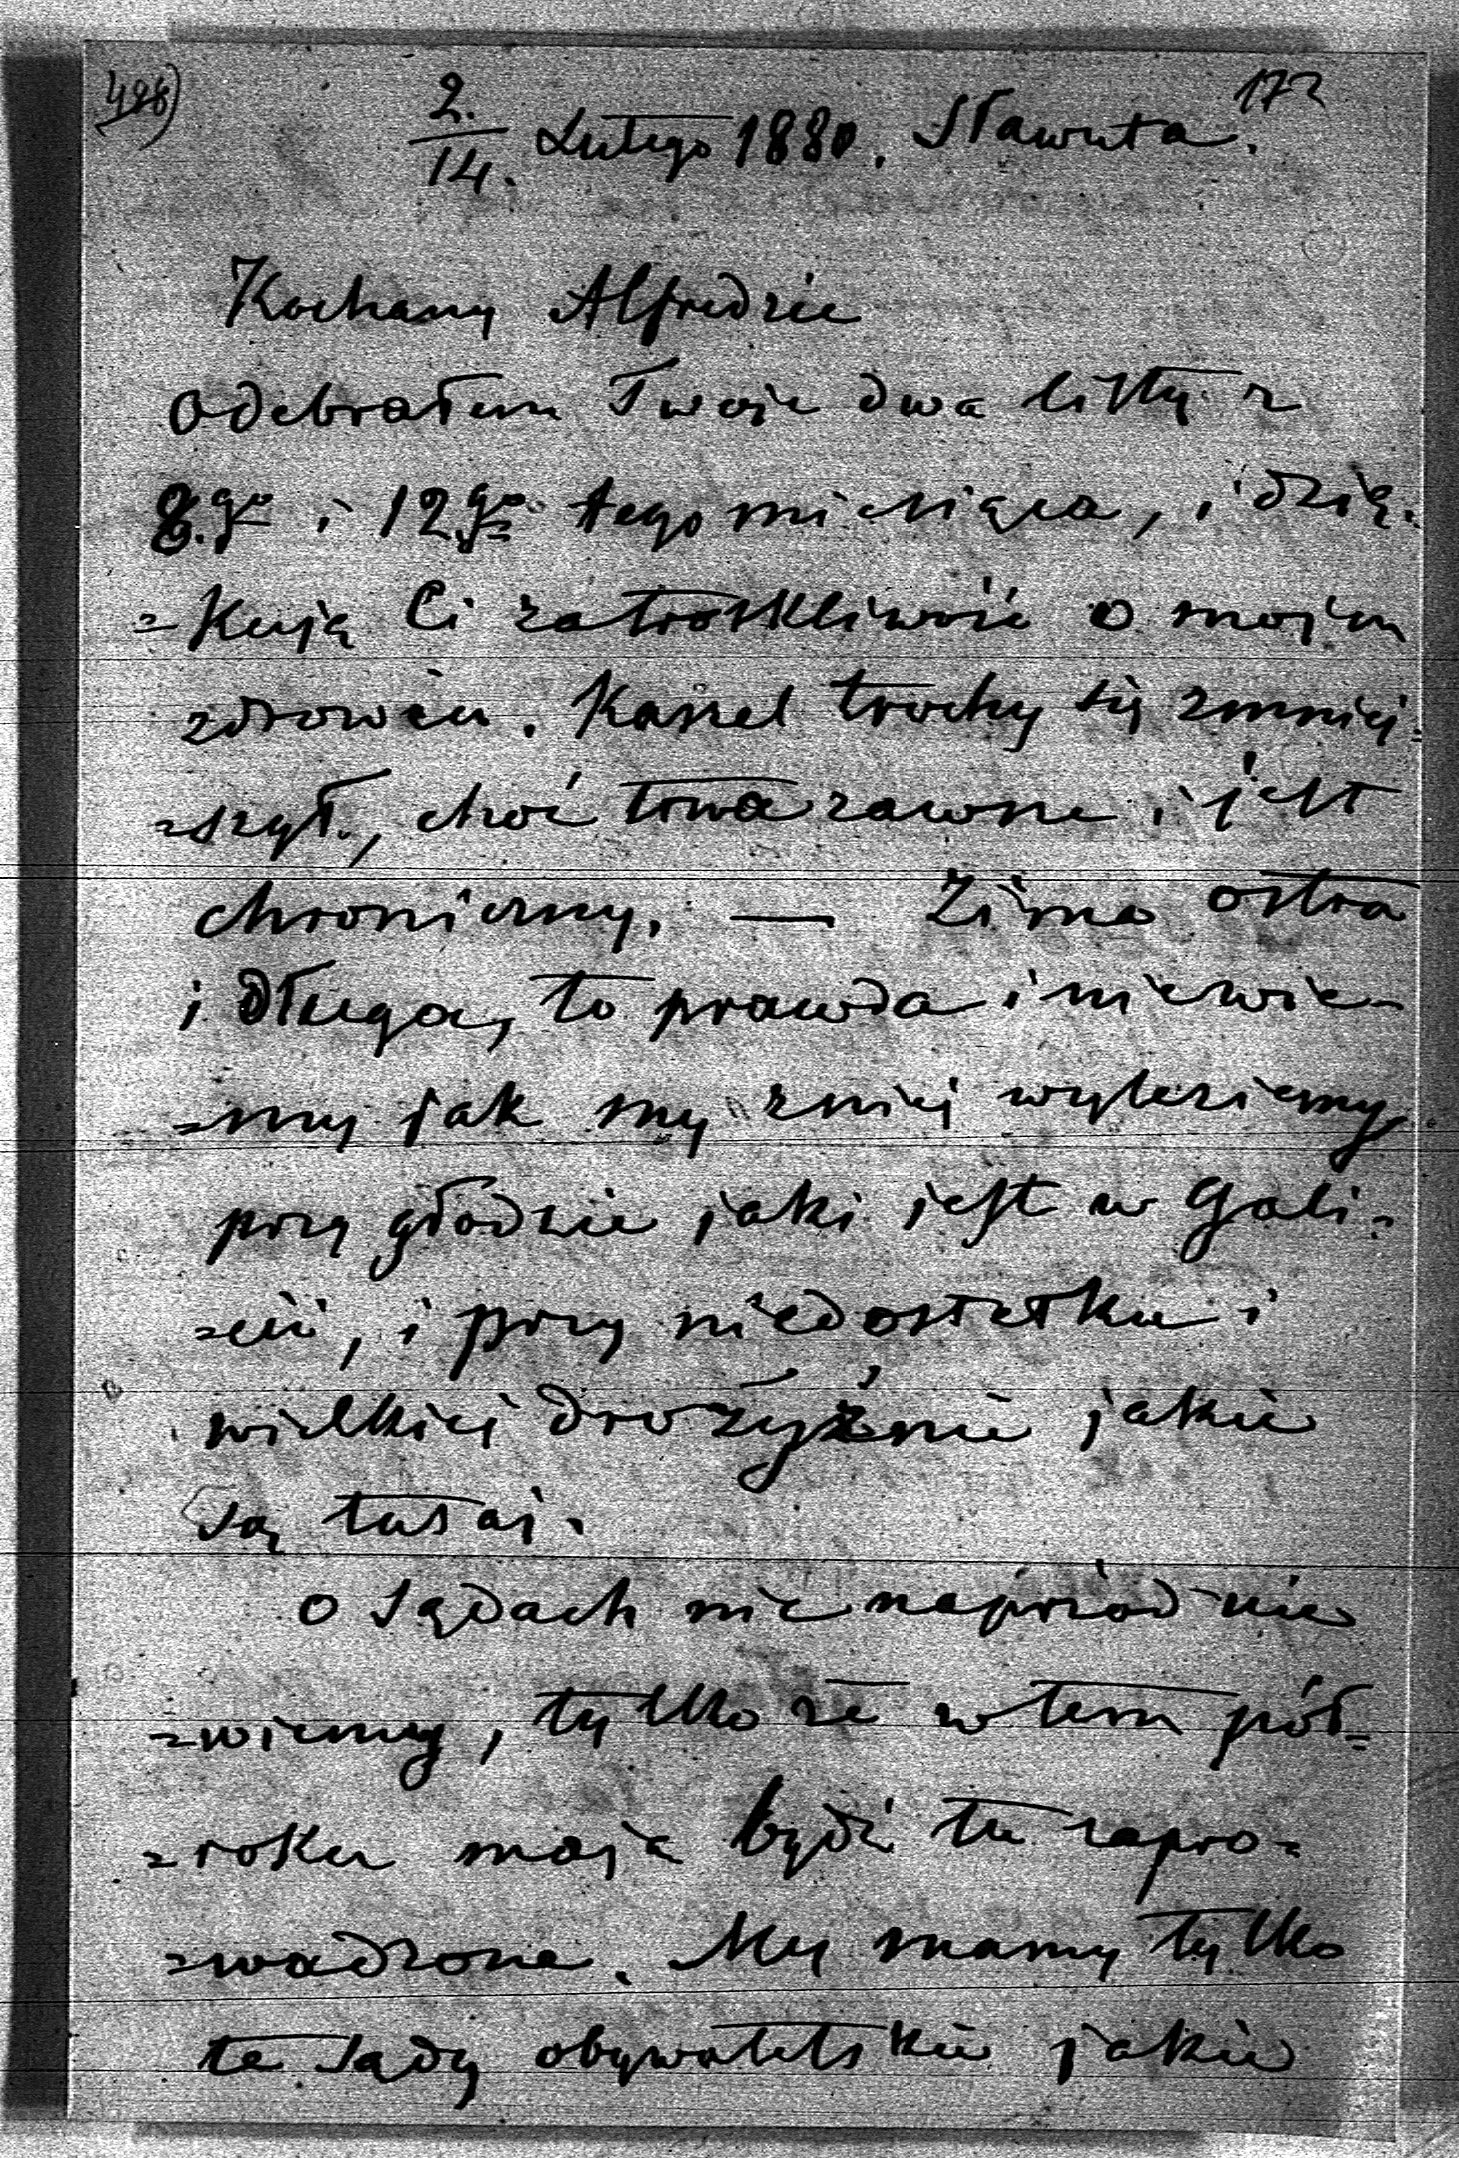 498) 172
2./14. Lutego 1880. Sławuta.
Kochany Alfredzie
Odebrałem Twoje dwa listy z
8.go i 12.go tego miesiąca, i dzię-
=kuję Ci za troskliwość o mojem
zdrowiu. Kaszel trochę się zmniej=
=szył, choć trwa zawsze i jest
chroniczny. — Zima ostra
i długa, to prawda i niewie-
=my jak my z niej wyleziemy
przy głodzie jaki jest w Gali=
=cii, i przy niedostatku i
wielkiej drożyźnie jakie
są tutaj.
O sądach nic naprzód nie
=wiemy, tylko że w tem pół=
=roku mają bydź tu zapro=
=wadzone. My mamy tylko
te sądy obywatelskie jakie